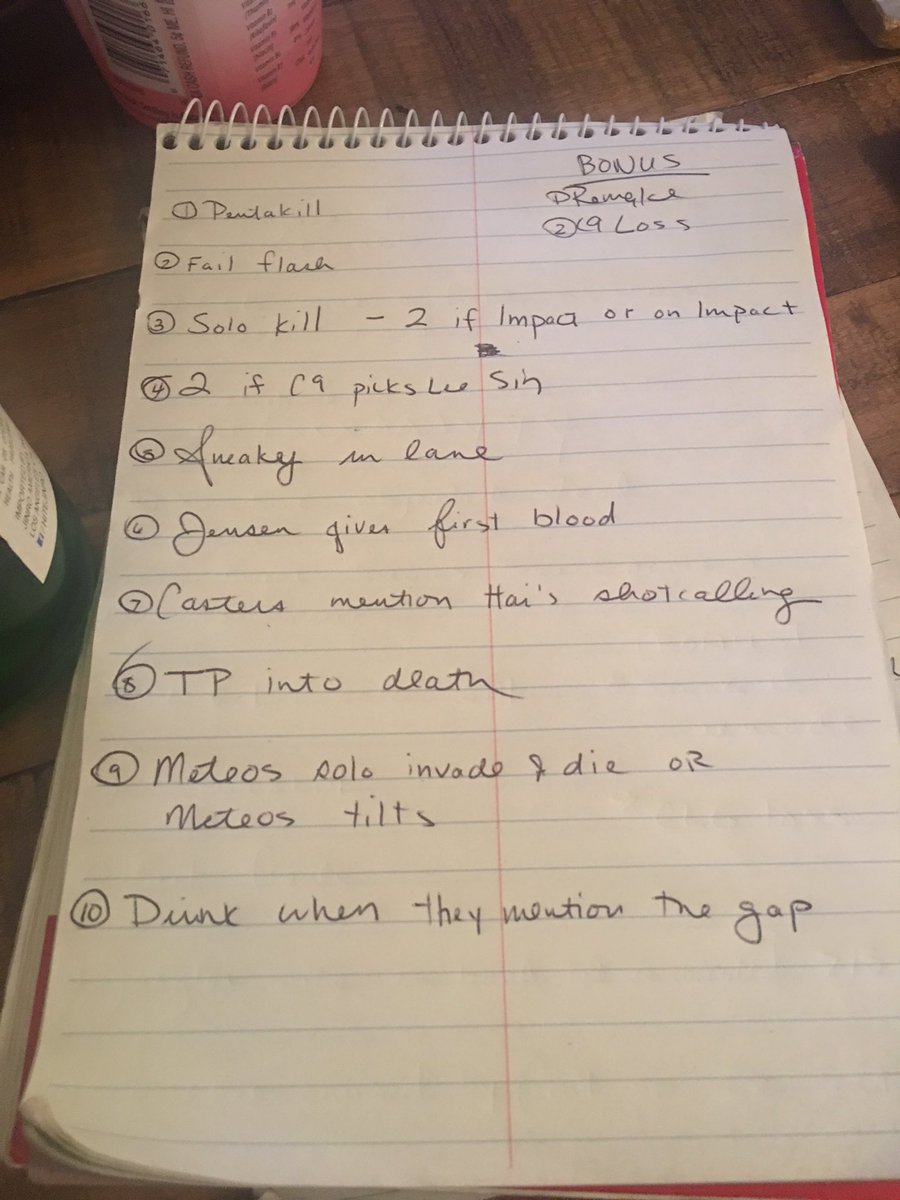 BONUS
① Pentakill
① Remake
② C9 Loss
② Fail flash
③ Solo kill - 2 if Impact or on Impact
④ 2 if C9 picks Lee Sin
⑤ Sneaky in lane
⑥ Jensen gives first blood
⑦ Casters mention Hai's shotcalling
⑧ TP into death
⑨ Meteos solo invade & die OR
Meteos tilts
⑩ Drink when they mention the gap
HEALTH
IMPORTED
LOS ANGELES